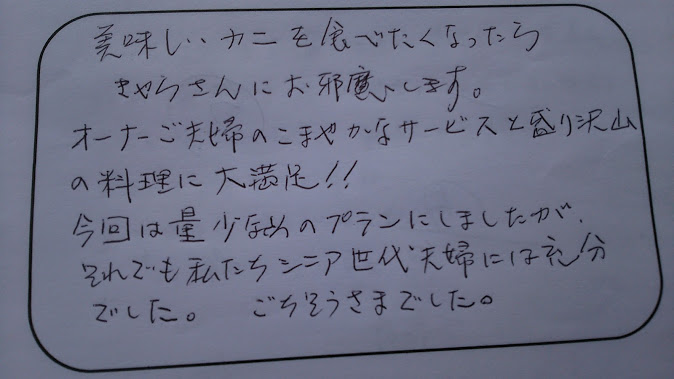 美味しいカニを食べたくなったら
きやらさんにお邪魔します。
オーナーご夫婦のこまやかなサービスと盛り沢山
の料理に大満足!!
今回は量少なめのプランにしましたが、
それでも私たちシニア世代夫婦には充分
でした。 ごちそうさまでした。